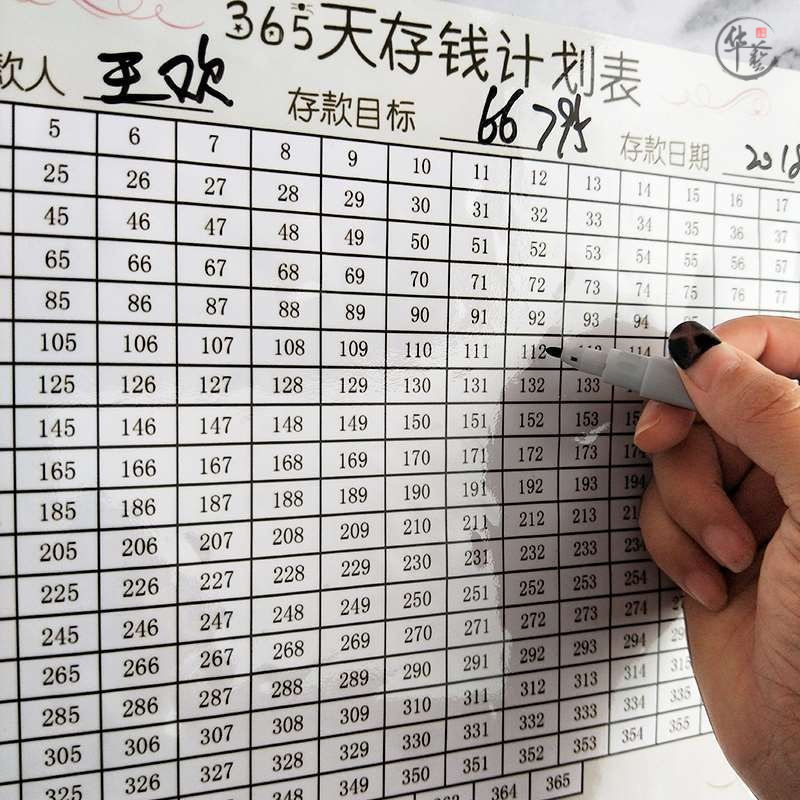 365天存钱计划表
华艺
款人 王欢 存款目标 66795 存款日期 2018
5 6 7 8 9 10 11 12 13 14 15 16 17
25 26 27 28 29 30 31 32 33 34 35 36 37
45 46 47 48 49 50 51 52 53 54 55 56 57
65 66 67 68 69 70 71 72 73 74 75 76 77
85 86 87 88 89 90 91 92 93 94
105 106 107 108 109 110 111 112 113 114
125 126 127 128 129 130 131 132 133
145 146 147 148 149 150 151 152 153
165 166 167 168 169 170 171 172 173
185 186 187 188 189 190 191 192 193 194
205 206 207 208 209 210 211 212 213
225 226 227 228 229 230 231 232 233 234
245 246 247 248 249 250 251 252 253 254
265 266 267 268 269 270 271 272 273 274
285 286 287 288 289 290 291 292 293 294
305 306 307 308 309 310 311 312 313 314 315
325 326 327 328 329 330 331 332 333 334 335
347 348 349 350 351 352 353 354 355
364 365